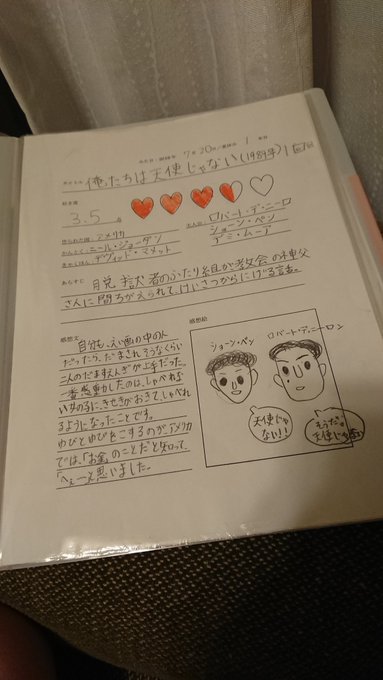 7月20日 1
タイトル 俺たちは天使じゃない(1989年) 1回目
3.5点
作られた国 アメリカ
かんとく ニール・ジョーダン
きゃくほん デヴィッド・マメット
主人公 ロバート・デ・ニーロ
ショーン・ペン
デミ・ムーア
あらすじ 脱獄者のふたり組が教会の神父
さんに間ちがえられて、けいさつからにげる話。
感想文
自分も、えい画の中の人
だったら、だまされそうなくらい
二人のだますえんぎが上手だった。
一番感動したのは、しゃべれな
い女の子に、きせきがおきて、しゃべれ
るようになったことです。
ゆびとゆびをこするのが、アメリカ
では、「お金」のことだと知って、
「へぇーと思いました。
感想絵
ショーン・ペン
ロバート・ディーニーロン
天使じゃ
ない!!
そうだ。
天使じゃ